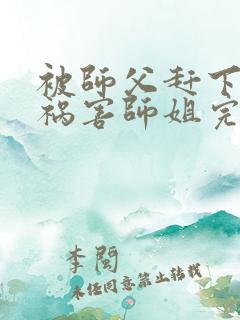 被師父赶下
祸害師姐完
李閩
未经同意禁止转载